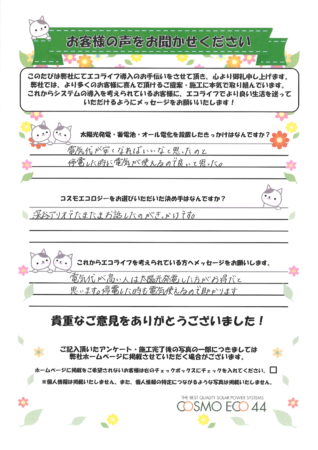 お客様の声をお聞かせください
このたびは弊社にてエコライフ導入のお手伝いをさせて頂き、心より御礼申し上げます。
弊社では、より多くのお客様に喜んで頂けるご提案・施工に本気で取り組んでいます。
これからシステムの導入を考えられているお客様に、エコライフでより良い生活を送って
いただけるようにメッセージをお願いいたします！
太陽光発電・蓄電池・オール電化を設置したきっかけはなんですか？
電気代が安くなればいいなと思ったのと
停電した時に電気が使えるので良いと思った。
コスモエコロジーをお選びいただいた決め手はなんですか？
深谷アリオでたまたまお話したのがきっかけです。
これからエコライフを考えられている方へメッセージをお願いします。
電気代が高い人は太陽光発電した方がお得だと
思います。停電した時も電気使えるので助かります
貴重なご意見をありがとうございました！
ご記入頂いたアンケート・施工完了後の写真の一部につきましては
弊社ホームページに掲載させていただく場合がございます。
ホームページに掲載をご希望されないお客様は右のチェックボックスにチェックを入れてください。
※個人情報は掲載いたしません、また、個人情報の特定につながるような写真は掲載いたしません。
THE BEST QUALITY SOLAR POWER SYSTEMS
COSMO ECO 44